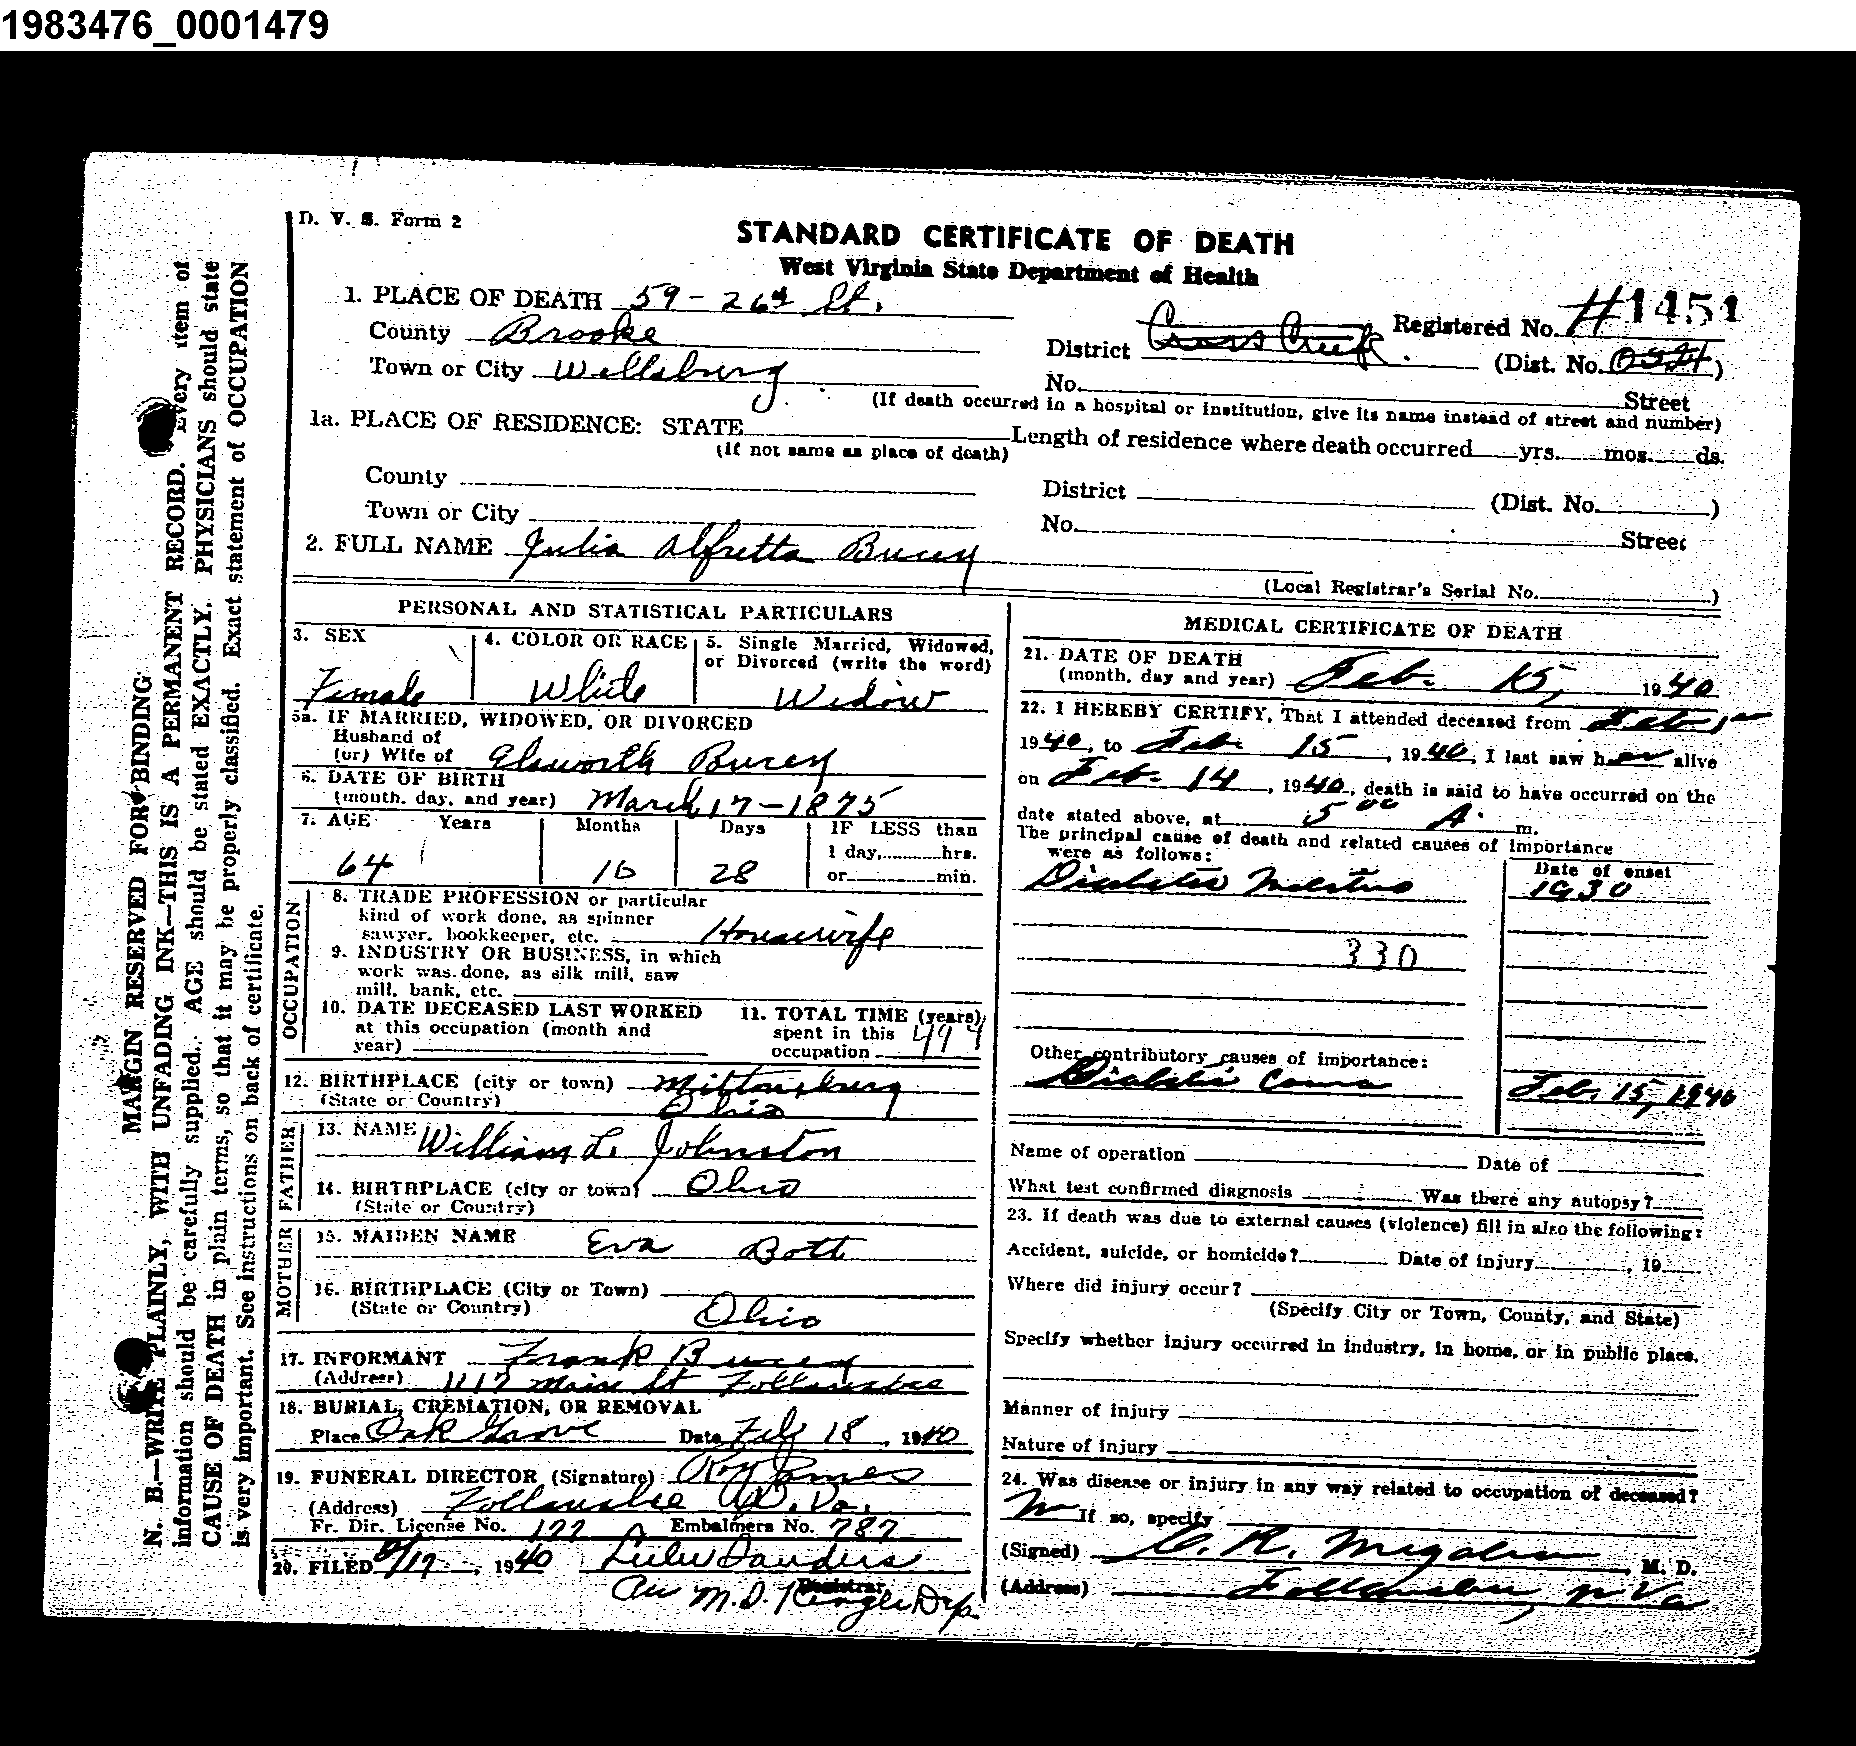 1983476_0001479
D. V. S. Form 2
STANDARD CERTIFICATE OF DEATH
West Virginia State Department of Health
1. PLACE OF DEATH 59 - 26th St.
Registered No. #1451
County Brooke
District Cross Creek. (Dist. No. 0524)
Town or City Wellsburg.
No. Street
(If death occurred in a hospital or institution, give its name instead of street and number)
1a. PLACE OF RESIDENCE: STATE
(If not same as place of death)
Length of residence where death occurred yrs. mos. ds.
County
District (Dist. No. )
Town or City
No. Street
2. FULL NAME Julia Alfretta Bucey
(Local Registrar's Serial No. )
PERSONAL AND STATISTICAL PARTICULARS
3. SEX
Female
4. COLOR OR RACE
White
5. Single Married, Widowed,
or Divorced (write the word)
Widow
5a. IF MARRIED, WIDOWED, OR DIVORCED
Husband of
(or) Wife of Elsworth Bucey
6. DATE OF BIRTH
(month, day, and year) March 17-1875
7. AGE Years Months Days IF LESS than
1 day, hrs.
or min.
64 10 28
OCCUPATION
8. TRADE PROFESSION or particular
kind of work done, as spinner
sawyer, bookkeeper, etc. Housewife
9. INDUSTRY OR BUSINESS, in which
work was done, as silk mill, saw
mill, bank, etc.
10. DATE DECEASED LAST WORKED
at this occupation (month and
year)
11. TOTAL TIME (years)
spent in this
occupation 49 y
12. BIRTHPLACE (city or town) Miltonsburg
(State or Country) Ohio
FATHER
13. NAME William L. Johnston
14. BIRTHPLACE (city or town) Ohio
(State or Country)
MOTHER
15. MAIDEN NAME Eva Bott
16. BIRTHPLACE (City or Town)
(State or Country) Ohio
17. INFORMANT Frank Bucey
(Address) 1117 Main St Follansbee
18. BURIAL, CREMATION, OR REMOVAL
Place Oak Grove Date Feb 18, 1940
19. FUNERAL DIRECTOR (Signature) Roy James
(Address) Follansbee W. Va.
Fr. Dir. License No. 122 Embalmers No. 787
20. FILED 2/17, 1940 Lulu Sanders
Registrar
M.D. Ringler Dep.
MEDICAL CERTIFICATE OF DEATH
21. DATE OF DEATH
(month, day and year) Feb. 15, 1940
22. I HEREBY CERTIFY, That I attended deceased from Feb 1
1940, to Feb. 15, 1940, I last saw her alive
on Feb. 14, 1940, death is said to have occurred on the
date stated above, at 5 00 A. m.
The principal cause of death and related causes of importance
were as follows:
Date of onset
Diabetes Melitus 1930
330
Other contributory causes of importance:
Diabetic Coma Feb. 15, 1940
Name of operation Date of
What test confirmed diagnosis Was there any autopsy?
23. If death was due to external causes (violence) fill in also the following:
Accident, suicide, or homicide? Date of injury , 19
Where did injury occur?
(Specify City or Town, County, and State)
Specify whether injury occurred in industry, in home, or in public place.
Manner of injury
Nature of injury
24. Was disease or injury in any way related to occupation of deceased?
No If so, specify
(Signed) C. R. Megahan, M. D.
(Address) Follansbee, W Va
MARGIN RESERVED FOR BINDING
N. B.—WRITE PLAINLY, WITH UNFADING INK—THIS IS A PERMANENT RECORD. Every item of
information should be carefully supplied. AGE should be stated EXACTLY. PHYSICIANS should state
CAUSE OF DEATH in plain terms, so that it may be properly classified. Exact statement of OCCUPATION
is very important. See instructions on back of certificate.